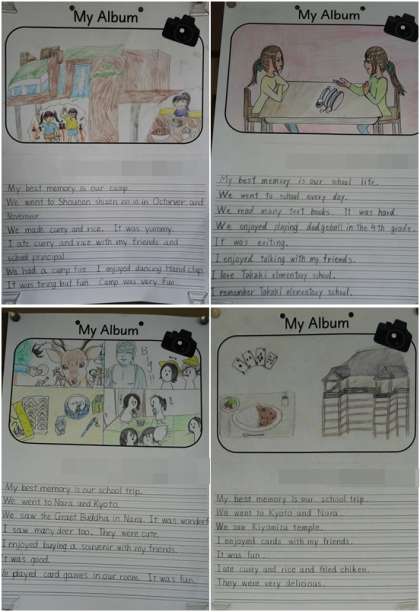 My Album
My best memory is our camp.
We went to Shounen shizen no ie in Octorver and
November.
We made curry and rice. It was yummy.
I ate curry and rice with my friends and
school principal.
We had a camp fire. I enjoyed dancing Hand clap.
It was tiring but fun. Camp was very fun.
My Album
My best memory is our school life.
We went to school every day.
We read many text books. It was hard.
We enjoyed playing dodgeball in the 4th grade.
It was exiting.
I enjoyed talking with my friends.
I love Takaki elementary school.
I remember Takaki elementary school.
My Album
My best memory is our school trip.
We went to Nara and Kyoto.
We saw the Great Buddha in Nara. It was wonderf
I saw many deer too. They were cute.
I enjoyed buying a souvenir with my friends.
It was good.
We played card games in our room. It was fun.
My Album
My best memory is our school trip.
We went to Kyoto and Nara.
We saw Kiyomizu temple.
I enjoyed cards with my friends.
It was fun.
I ate curry and rice and fried chiken.
They were very delicious.